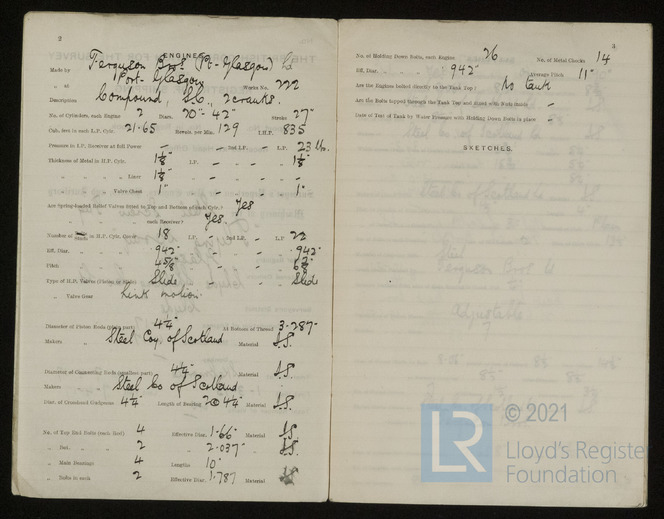 2
ENGINES.
Made by Ferguson Bros (Pt-Glasgow) Ld
„ at Port-Glasgow Works No. 222
Description Compound, S.C., 2 cranks.
No. of Cylinders, each Engine 2 Diars. 20"-42" Stroke 27"
Cub. feet in each L.P. Cylr. 21.65 Revols. per Min. 129 I.H.P. 835
Pressure in I.P. Receiver at Full Power – – 2nd I.P. – – L.P. 23 lbs.
Thickness of Metal in H.P. Cylr. 1⅛" I.P. – – – 1⅛"
„ „ Liner 1⅛" – – – –
„ „ Valve Chest 1" – – – 1"
Are Spring-loaded Relief Valves fitted to Top and Bottom of each Cylr.? Yes
„ „ each Receiver? Yes.
Number of in H.P. Cylr. Cover 18 I.P. – 2nd I.P. – L.P. 22
Eff. Diar. „ .942" – – – .942"
Pitch „
Type of H.P. Valves (Piston or Slide) Slide – – – Slide
„ Valve Gear Link motion.
Diameter of Piston Rods (plain part) 4¼" At Bottom of Thread 3.287"
Makers Steel Coy. of Scotland Material I.S.
Diameter of Connecting Rods (smallest part) 4¼" Material I.S.
Makers Steel Co of Scotland
Diar. of Crosshead Gudgeons 4¼" Length of Bearing 2@4¼" Material I.S.
No. of Top End Bolts (each Rod) 4 Effective Diar. 1.66" Material I.S.
„ Bot. „ „ 2 „ 2.037" „ I.S.
„ Main Bearings 4 Lengths 10"
„ Bolts in each 2 Effective Diar. 1.787 Material I.S.
3
No. of Holding Down Bolts, each Engine 26 No. of Metal Chocks 14
Eff. Diar. .942" Average Pitch 11"
Are the Engines bolted directly to the Tank Top? No tank
Are the Bolts tapped through the Tank Top and fitted with Nuts inside –
Date of Test of Tank by Water Pressure with Holding Down Bolts in place –
SKETCHES.
LR © 2021
Lloyd's Register
Foundation